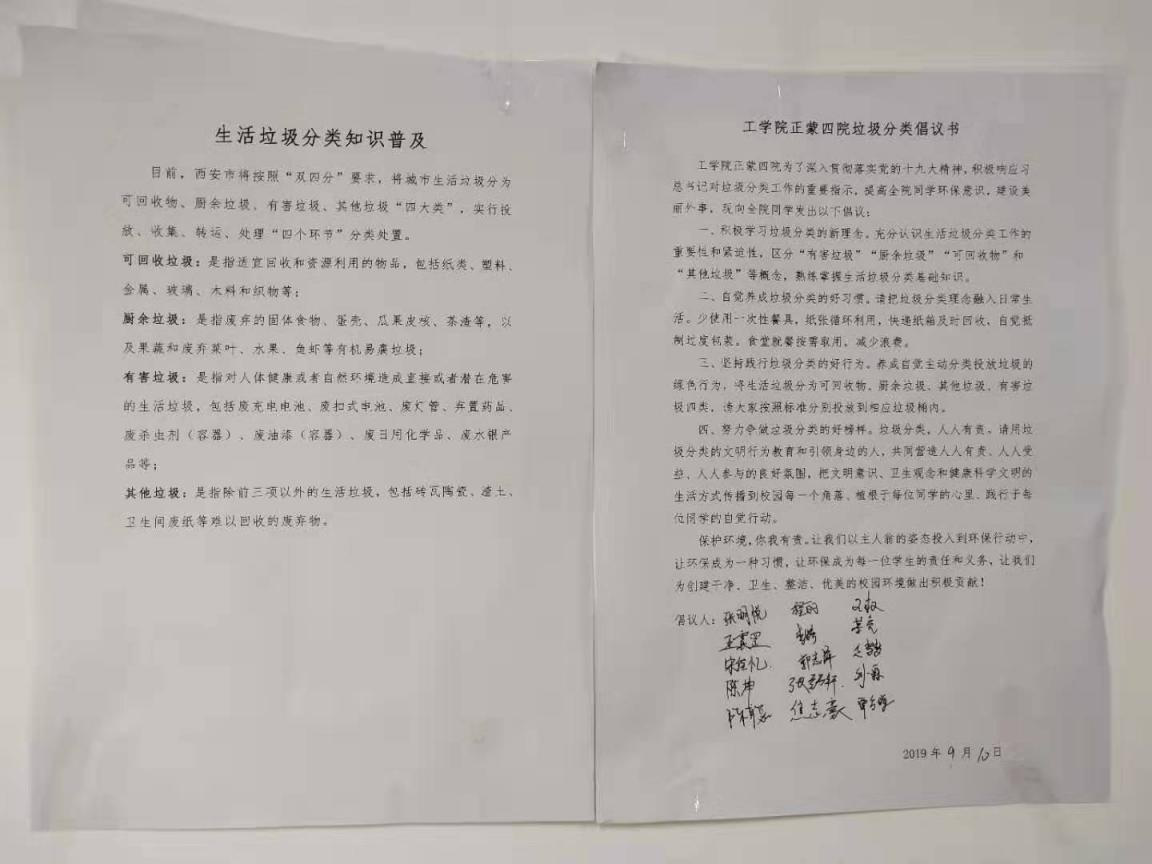 生活垃圾分类知识普及
目前，西安市将按照“双四分”要求，将城市生活垃圾分为
可回收物、厨余垃圾、有害垃圾、其他垃圾“四大类”，实行投
放、收集、转运、处理“四个环节”分类处置。
可回收垃圾：是指适宜回收和资源利用的物品，包括纸类、塑料、
金属、玻璃、木料和织物等；
厨余垃圾：是指废弃的固体食物、蛋壳、瓜果皮核、茶渣等，以
及果蔬和废弃菜叶、水果、鱼虾等有机易腐垃圾；
有害垃圾：是指对人体健康或者自然环境造成直接或者潜在危害
的生活垃圾，包括废充电电池、废扣式电池、废灯管、弃置药品、
废杀虫剂（容器）、废油漆（容器）、废日用化学品、废水银产
品等；
其他垃圾：是指除前三项以外的生活垃圾，包括砖瓦陶瓷、渣土、
卫生间废纸等难以回收的废弃物。
工学院正蒙四院垃圾分类倡议书
工学院正蒙四院为了深入贯彻落实党的十九大精神，积极响应习
总书记对垃圾分类工作的重要指示，提高全院同学环保意识，建设美
丽外事，现向全院同学发出以下倡议：
一、积极学习垃圾分类的新理念。充分认识生活垃圾分类工作的
重要性和紧迫性，区分“有害垃圾”“厨余垃圾”“可回收物”和
“其他垃圾”等概念，熟练掌握生活垃圾分类基础知识。
二、自觉养成垃圾分类的好习惯。请把垃圾分类理念融入日常生
活。少使用一次性餐具，纸张循环利用，快递纸箱及时回收，自觉抵
制过度包装。食堂就餐按需取用，减少浪费。
三、坚持践行垃圾分类的好行为。养成自觉主动分类投放垃圾的
绿色行为，将生活垃圾分为可回收物、厨余垃圾、其他垃圾、有害垃
圾四类，请大家按照标准分别投放到相应垃圾桶内。
四、努力争做垃圾分类的好榜样。垃圾分类，人人有责。请用垃
圾分类的文明行为教育和引领身边的人，共同营造人人有责、人人受
益、人人参与的良好氛围，把文明意识、卫生观念和健康科学文明的
生活方式传播到校园每一个角落、植根于每位同学的心里、践行于每
位同学的自觉行动。
保护环境，你我有责。让我们以主人翁的姿态投入到环保行动中，
让环保成为一种习惯，让环保成为每一位学生的责任和义务，让我们
为创建干净、卫生、整洁、优美的校园环境做出积极贡献！
倡议人：张明悦
陈坤
焦志豪
2019年9月10日